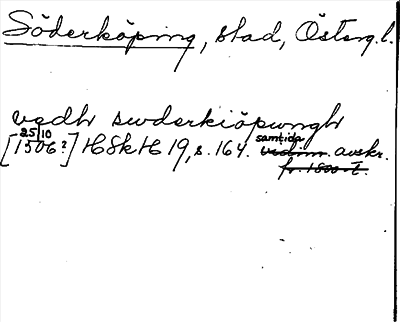 Söderköping, stad, Österg.l.
vedh swderkiöpwnghr
25/10
[1506?] HSkH 19, s. 164. samtida avskr.
fr. 1800-t.